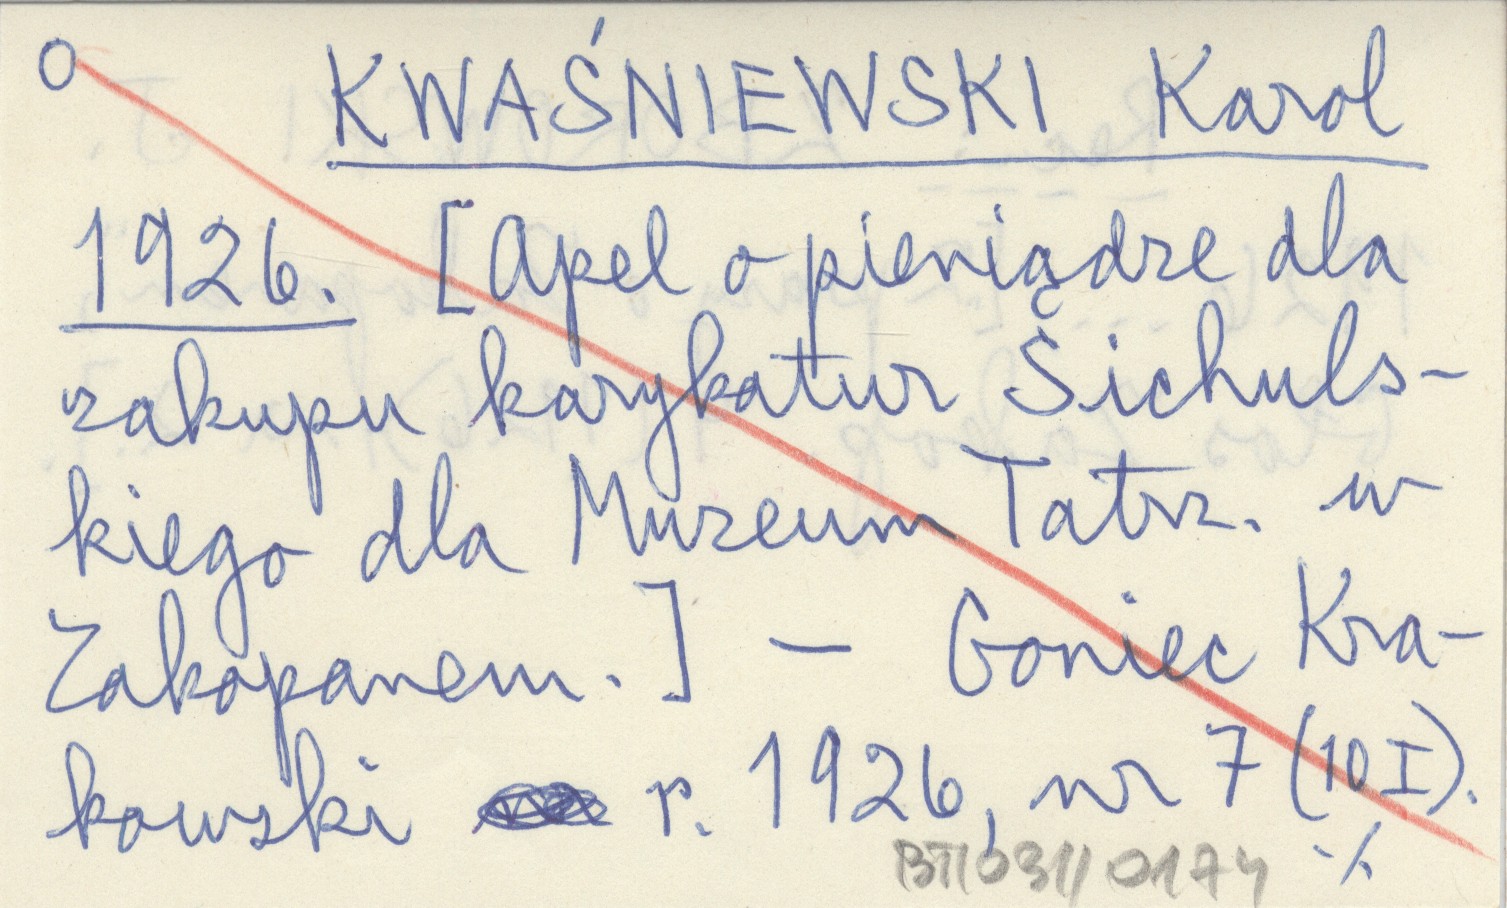 O KWAŚNIEWSKI Karol
1926. [Apel o pieniądze dla
zakupu karykatur Sichuls-
kiego dla Muzeum Tatrz. w
Zakopanem.] — Goniec Kra-
kowski r. 1926, nr 7 (10 I).
./.